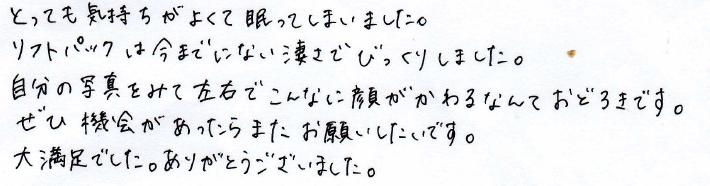 とっても気持ちがよくて眠ってしまいました。
リフトパックは今までにない凄さでびっくりしました。
自分の写真をみて左右でこんなに顔がかわるなんておどろきです。
ぜひ機会があったらまたお願いしたいです。
大満足でした。ありがとうございました。